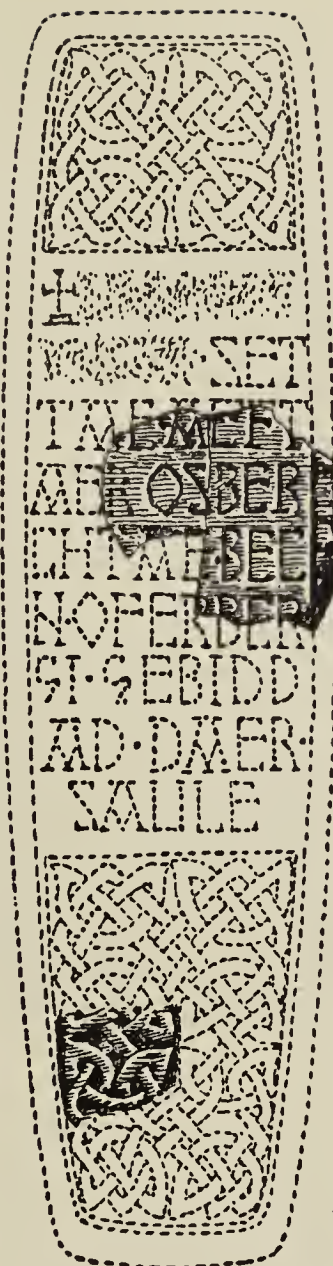 · SET
ÆR OSBER
CHTÆ BEC
N·OFER BER
GI·GEBIDD
AD·DÆR·
SAULE